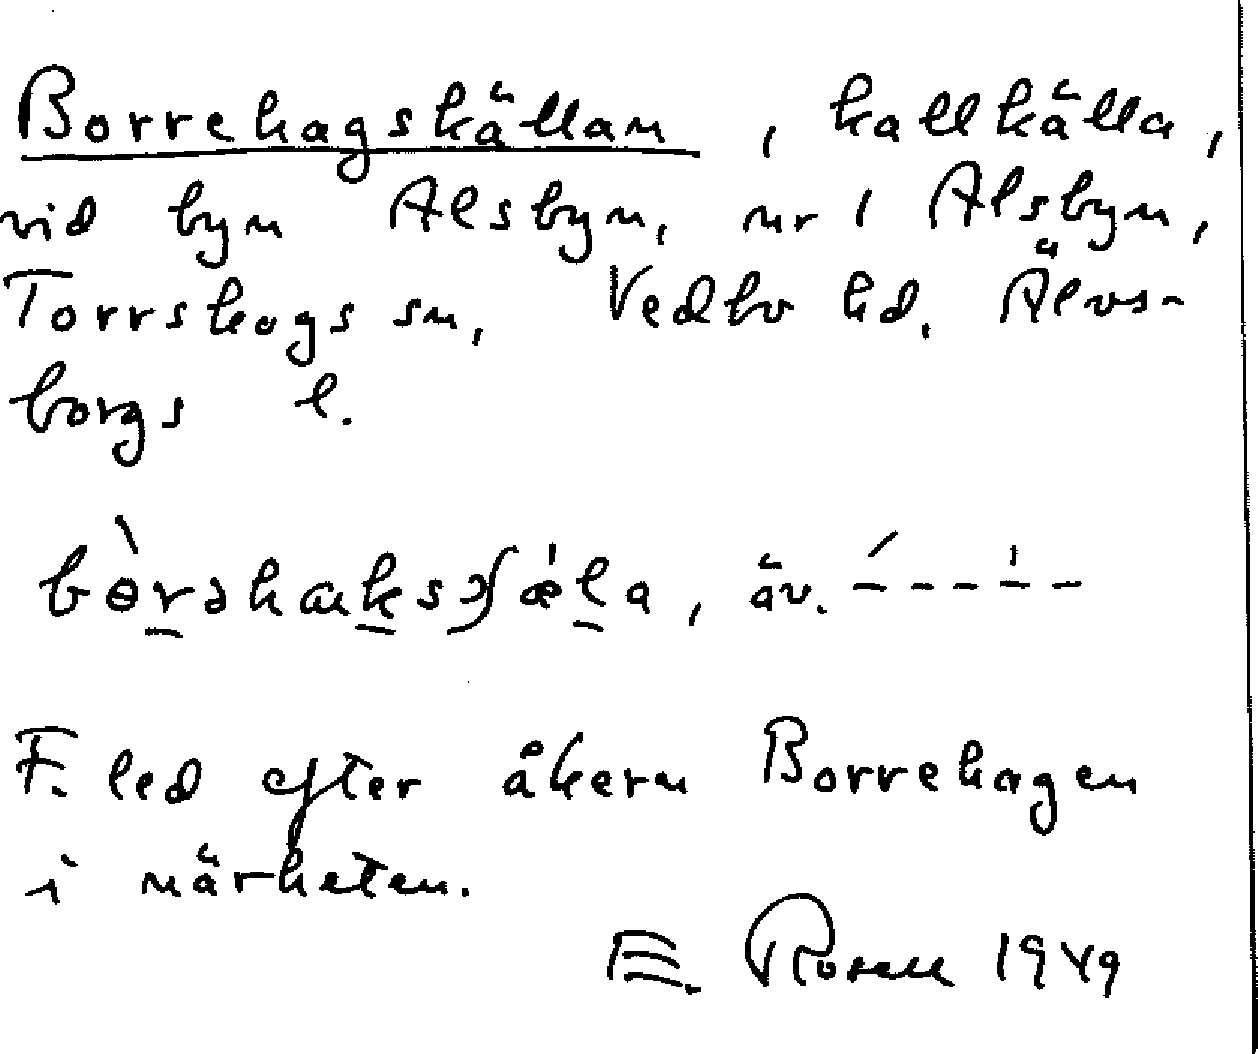 Borrehagskällan, kallkälla,
vid byn Alsbyn, nr 1 Alsbyn,
Torrskogs sn, Vedbo hd. Älvs-
borgs l.
äv.
F. led efter åkern Borrehagen
i närheten.
E. Rosell 1949